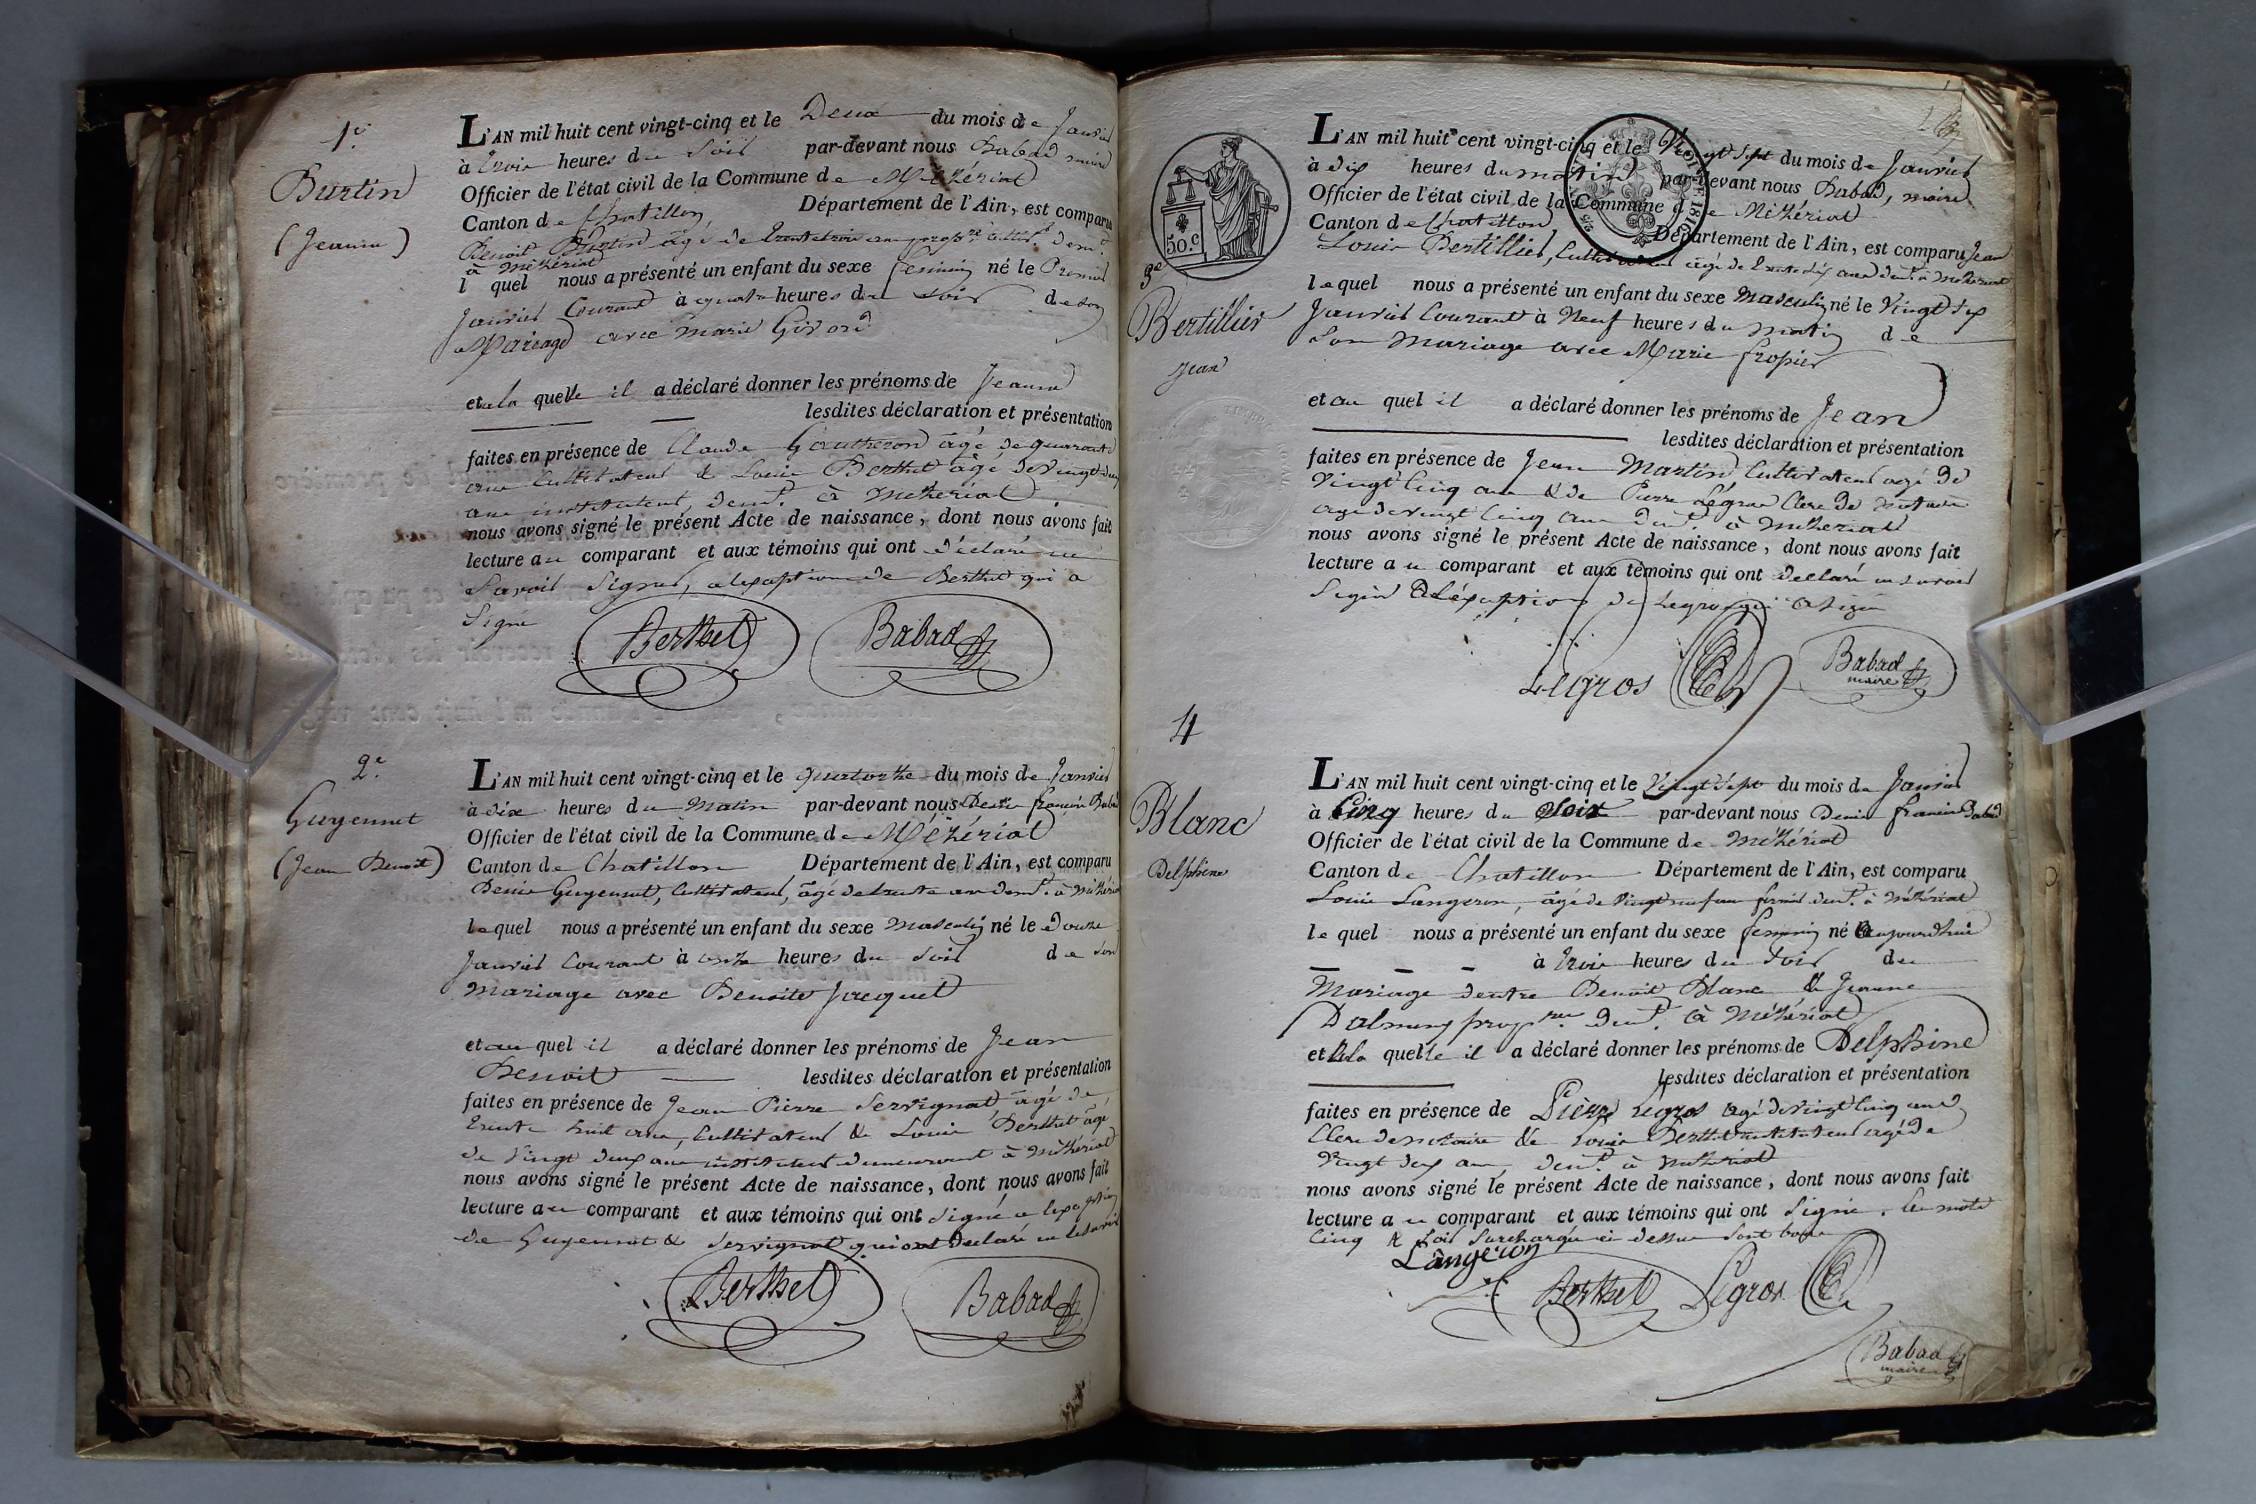 1.er
Burtin
(Jeanne)
L'AN mil huit cent vingt-cinq et le Deux du mois de Janvier
à trois heures du soir par-devant nous Babad maire
Officier de l'état civil de la Commune de Mézériat
Canton de Chatillon Département de l'Ain, est comparu
Benoit Burtin âgé de trente trois ans prop.re cultiv.r dem.t
à Mézériat
l quel nous a présenté un enfant du sexe féminin né le Premier
Janvier Courant à quatre heures du soir de son
Mariage avec Marie Girord
et a la quelle il a déclaré donner les prénoms de Jeanne
lesdites déclaration et présentation
faites en présence de Claude Gautheron âgé de quarante
ans Cultivateur & Louis Berthet âgé de vingt deux
ans instituteur, dem.t à Mézériat
nous avons signé le présent Acte de naissance, dont nous avons fait
lecture au comparant et aux témoins qui ont déclaré ne
Savoir Signer, a l'exaption de Berthet qui a
Signé
Berthet Babad
2.e
Guyennet
(Jean Benoit)
L'AN mil huit cent vingt-cinq et le quatorze du mois de Janvier
à dix heures du Matin par-devant nous Denis françois Babad
Officier de l'état civil de la Commune de Mézériat
Canton de Chatillon Département de l'Ain, est comparu
Denis Guyennet, Cultivateur, âgé de trente ans dem.t à Mézériat
lequel nous a présenté un enfant du sexe masculin né le Douze
Janvier Courant à onze heures du Soir de son
mariage avec Benoite Jacquet
et au quel il a déclaré donner les prénoms de Jean
Benoit lesdites déclaration et présentation
faites en présence de Jean Pierre Servignat âgé de
trente huit ans, Cultivateur & Louis Berthet âgé
de Vingt deux ans instituteur demeurant à Mézériat
nous avons signé le présent Acte de naissance, dont nous avons fait
lecture au comparant et aux témoins qui ont signé a l'exaption
de Guyennet & Servignat qui ont déclaré ne le savoir
Berthet Babad
50.c
3e
Bertillier
Jean
L'AN mil huit cent vingt-cinq et le Vingt Sept du mois de Janvier
à dix heures du matin par-devant nous Babad, maire
Officier de l'état civil de la Commune de Mézériat
Canton de Chatillon Département de l'Ain, est comparu Jean
Louis Bertillier, Cultivateur âgé de trente six ans dem.t à Mézériat
lequel nous a présenté un enfant du sexe Masculin né le Vingt Six
Janvier Courant à Neuf heures du matin de
Son mariage avec Marie fropier
et au quel il a déclaré donner les prénoms de Jean
lesdites déclaration et présentation
faites en présence de Jean Martin Cultivateur agé de
Vingt Cinq ans & de Pierre Légros Clerc de Notaire
age de vingt Cinq ans dem.t à Mézériat
nous avons signé le présent Acte de naissance, dont nous avons fait
lecture au comparant et aux témoins qui ont déclaré ne savoir
Signer à l'éxaption de Legros qui a Signé
Légros Babad
maire
4
Blanc
Delphine
L'AN mil huit cent vingt-cinq et le Vingt Sept du mois de Janvier
à Cinq heures du Soir par-devant nous Denis françois Babad
Officier de l'état civil de la Commune de Mézériat
Canton de Chatillon Département de l'Ain, est comparu
Louis Langeron, âgé de Vingt neuf ans fermier dem.t à Mézériat
lequel nous a présenté un enfant du sexe féminin né aujourdhui
à trois heures du Soir du
Mariage d'entre Benoit Blanc & Jeanne
Dalmung prop.res dem.t à Mézériat
et à la quelle il a déclaré donner les prénoms de Delphine
lesdites déclaration et présentation
faites en présence de Pierre Legros agé de vingt Cinq ans
Clerc de notaire & Louis Berthet instituteur agé de
Vingt deux ans dem.t à Mézériat
nous avons signé le présent Acte de naissance, dont nous avons fait
lecture au comparant et aux témoins qui ont Signé. Les mots
Cinq & Soir Surchargés ci dessus sont bons
Langeron
Berthet Légros
Babad
maire